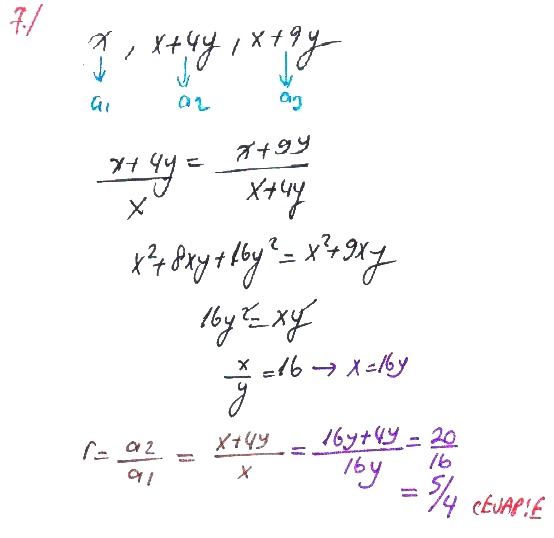 7./
x, x+4y, x+9y
a1 a2 a3
x+4y/x = x+9y/x+4y
x²+8xy+16y²=x²+9xy
16y²=xy
x/y=16 → x=16y
r= a2/a1 = x+4y/x = 16y+4y/16y = 20/16
= 5/4 CEVAP!E